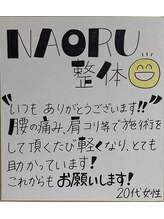 NAORU
整体
"いつも ありがとうございます!!"
腰の痛み、肩コリ等で施術を
して頂くたび軽くなり、とても
助かっています!
これからもお願いします!
20代女性